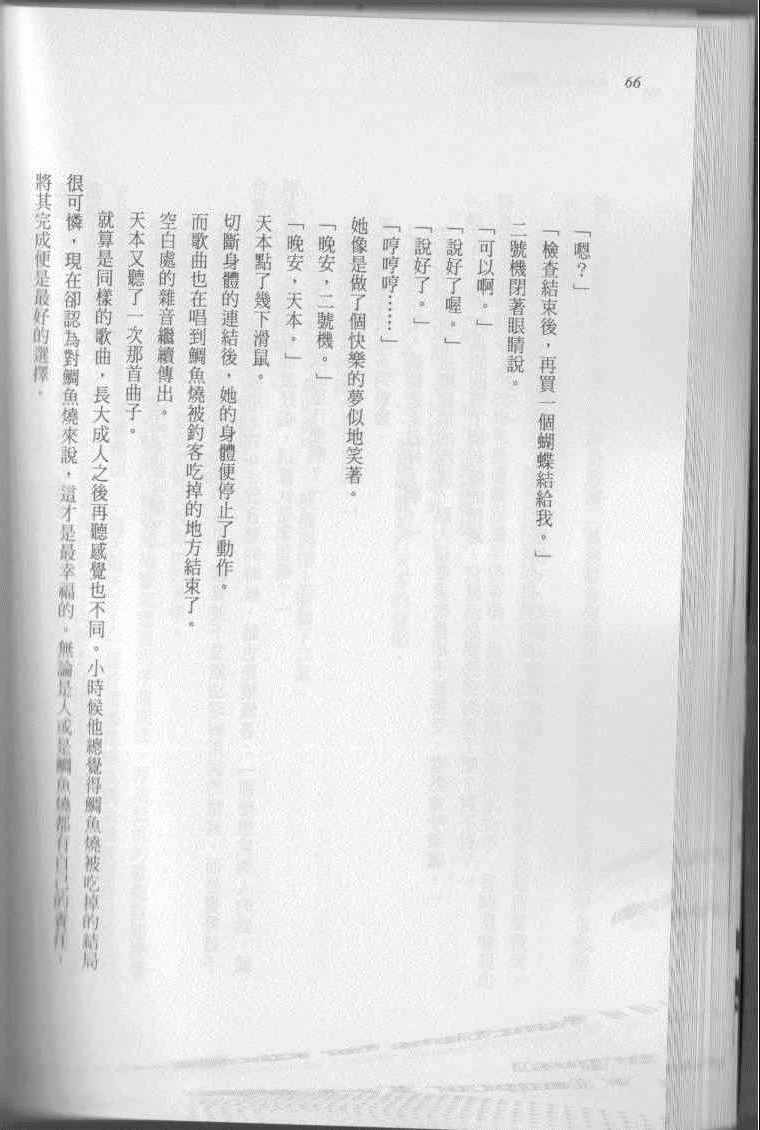 66
「嗯？」
「檢查結束後，再買一個蝴蝶結給我。」
二號機閉著眼睛說。
「可以啊。」
「說好了喔。」
「說好了。」
「哼哼哼……」
她像是做了個快樂的夢似地笑著。
「晚安，二號機。」
「晚安，天本。」
天本點了幾下滑鼠。
切斷身體的連結後，她的身體便停止了動作。
而歌曲也在唱到鯛魚燒被釣客吃掉的地方結束了。
空白處的雜音繼續傳出。
天本又聽了一次那首曲子。
就算是同樣的歌曲，長大成人之後再聽感覺也不同。小時候他總覺得鯛魚燒被吃掉的結局
很可憐，現在卻認為對鯛魚燒來說，這才是最幸福的。無論是人或是鯛魚燒都有自己的責任，
將其完成便是最好的選擇。